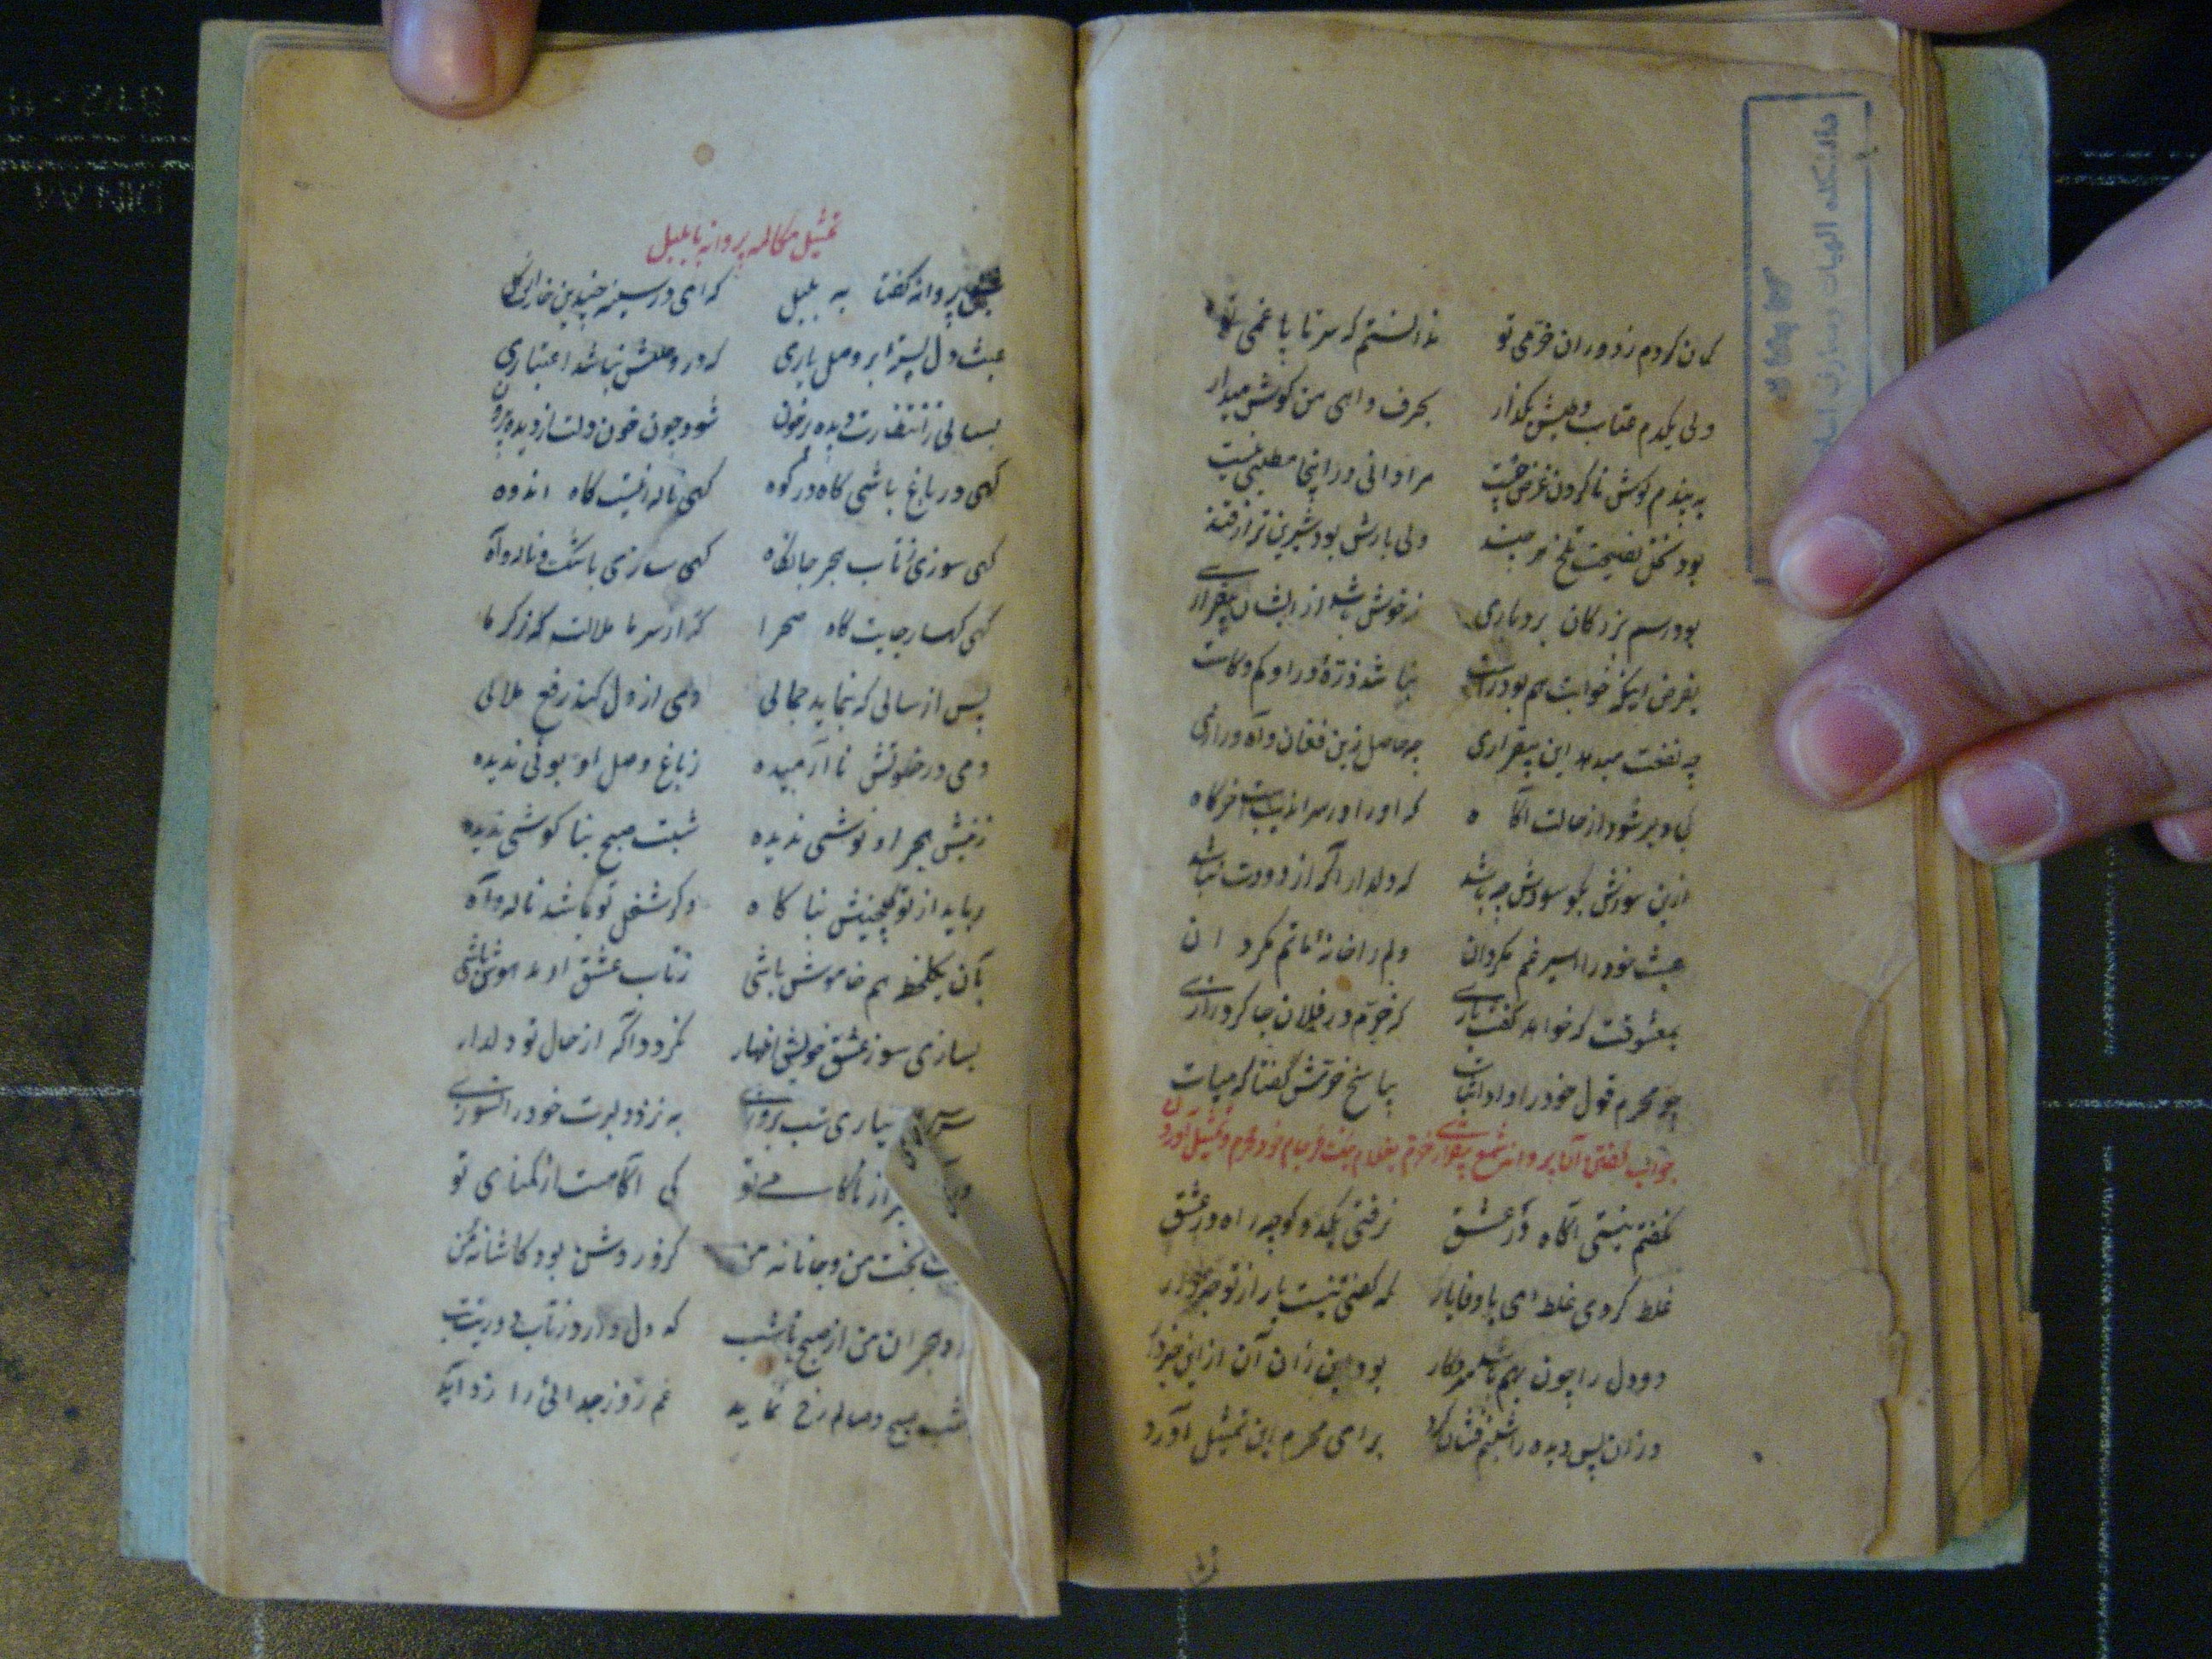 گمان کردم ز دوران خرمی تو ندانستم که سر تا پا غمی تو
ولی یکدم عتاب و طیش بگذار بحرف دامی من گوش میدار
به پندم گوش ناکردن غرض چیست مرا دانی در اینجا مطلبی نیست
بود نخل نصیحت تلخ هر چند ولی بارش بود شیرین تر از قند
بود رسم بزرگان بردباری ز خوش باشد از ایشان بیقراری
بفرض اینکه خوابت هم بود راست نباشد ذره در او کم و کاست
چه نفعت میدهد این بیقراری چه حاصل زین فغان و آه و زاری
کی دلبر شود از حالت آگاه که او را در سراندیب است خرگاه
ازین سوزش بگو سودش چه باشد که دلدار آگه از دودت نباشد
عبث خود را اسیر غم مگردان دلم را خانه ماتم مگردان
بمعشوقت که خواهد گفت باری که خرم در فلان جا کرد زاری
چو محرم قول خود را داد اثبات بپاسخ خرمش گفتا که هیهات
جواب گفتن آن پروانه شمع بیقراری خرم بغلام نیکبخت فرجام خود محرم و تمثیل آوردن
نگفتم نیستی آگاه در عشق نرفتی یکدو کوچه راه در عشق
غلط کردی غلط ای با وفا یار که گفتی نیست یار از تو خبردار
دو دل را چون بهم باشد سر و کار بود این زان آن از این خبردار
وزان پس دیده را شبنم فشان کرد برای محرم این تمثیل آورد
تمثیل مکالمه پروانه با بلبل
پروانه گفتا به بلبل که ای در سینه چندین خار از گل
عبث دل بستۀ بر وصل یاری که در وصلش نباشد اعتباری
بسالی ز انتظارت دیده پرخون شود چون خون دلت از دیده بیرون
گهی در باغ باشی گاه در کوه گهی ناله انیست گاه اندوه
گهی سوزی ز تاب هجر جانکاه گهی سازی با شک و ناله و آه
گهی کهسار جایت گاه صحرا گه از سرما ملالت گه ز گرما
پس از سالی که بنماید جمالی دمی از دل کند رفع ملالی
دمی در خلوتش نا آرمیده ز باغ وصل او بوئی ندیده
ز نیش هجر او نوشی ندیده شبت صبح بناگوشی ندیده
رباید از تو گلچینش بناگاه دگر شغل تو باشد ناله و آه
بآن یکلحظه هم خاموش باشی ز تاب عشق او مدهوش باشی
بسازی سوز عشق خویش اظهار نگردد آگه از حال تو دلدار
بیاری شب بروزی به نزد دلبرت خود را نسوزی
از ناکامی تو کی آگاهست از تمنای تو
بخت من و جانانه من کزو روشن بود کاشانه من
هجران من از صبح تا شب که دل دارد ز تاب دوریت تب
شب صبح وصالم رخ نماید غم روز جدائی را زداید
دانشکده الهیات و معارف اسلامی